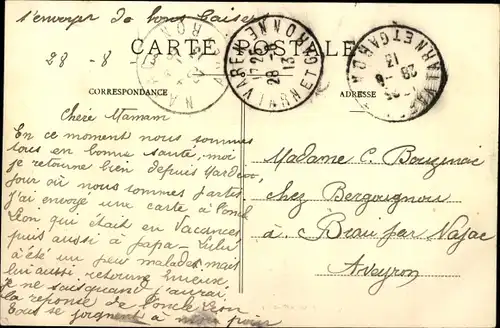 s'envoyer de bons baisers
28 - 8
CARTE POSTALE
CORRESPONDANCE
ADRESSE
Chère Maman
En ce moment nous sommes
tous en bonne santé, moi
je retourne bien depuis Mardi
jour où nous sommes partis
j'ai envoyé une carte à l'oncle
Léon qui était en Vacances
puis aussi à papa - Lulu
a été un peu malade mais
lui aussi retourne mieux,
je ne sais quand j'aurai
la réponse de l'oncle Léon
Tous se joignent à moi pour
Madame C.
chez Bergougnoux
à Beau par Najac
Aveyron
VAREN
TARN ET GARONNE
28 -8
13